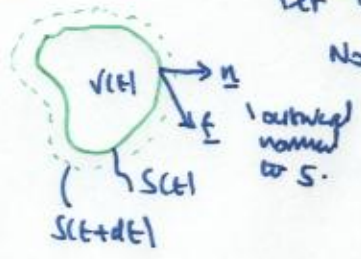 No
V(t)
n
outward
normal
to S.
t
S(t)
S(t+dt)